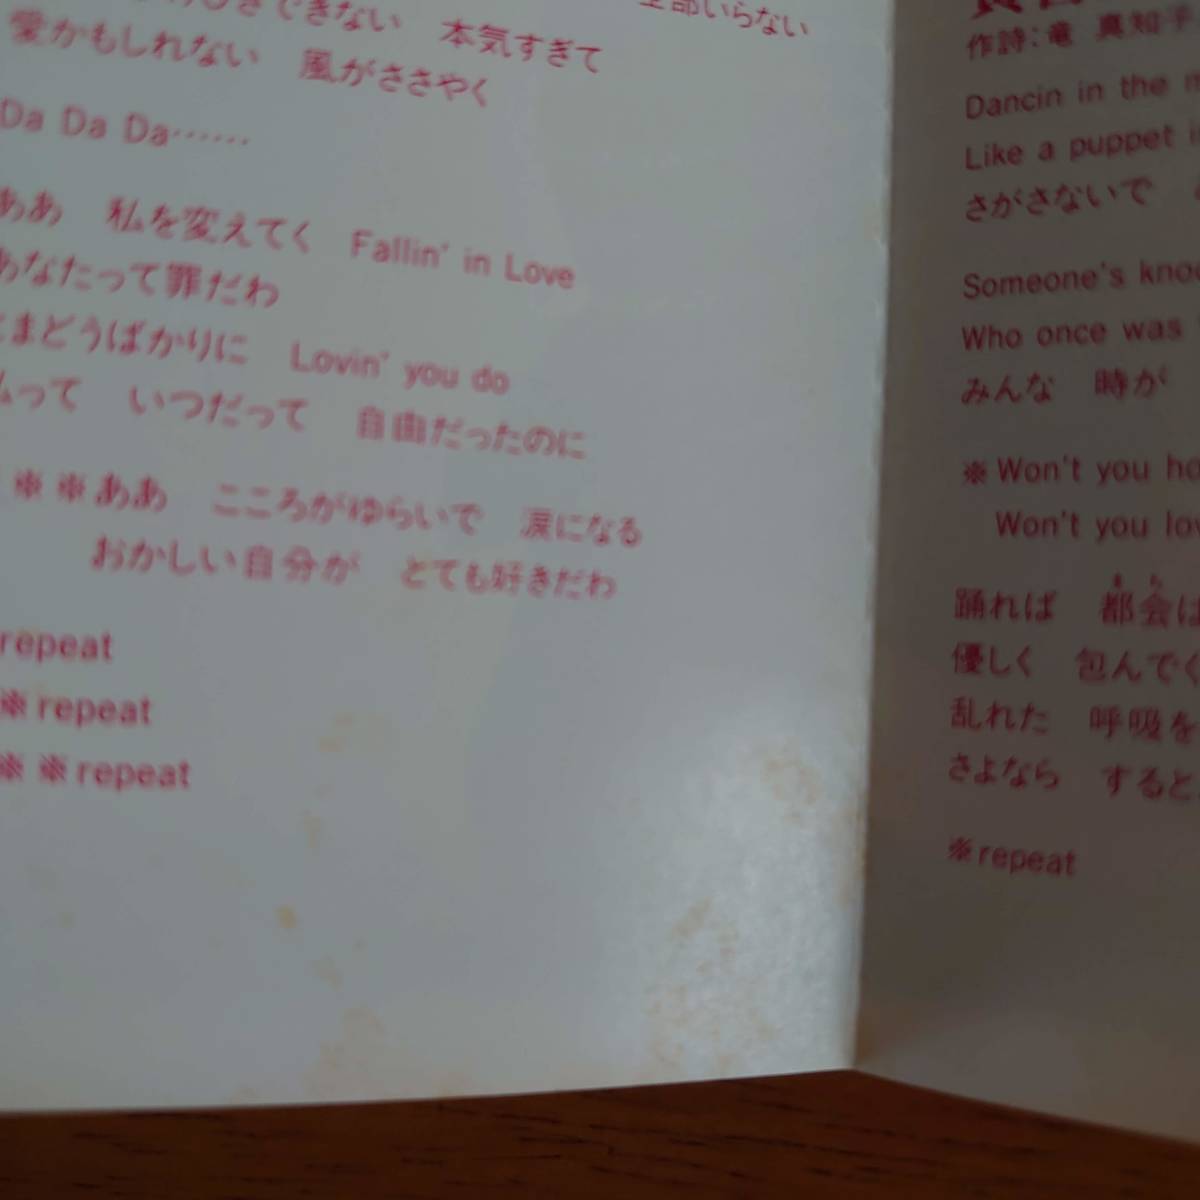 できない 本気すぎて
全部いらない
愛かもしれない 風がささやく
Da Da Da……
ああ 私を変えてく Fallin' in Love
あなたって罪だわ
とまどうばかりに Lovin' you do
私って いつだって 自由だったのに
※※ああ こころがゆらいで 涙になる
おかしい自分が とても好きだわ
repeat
※repeat
※※repeat
作詩:竜 真知子
Dancin in the
Like a puppet
さがさないで
Someone's
Who once was
みんな 時が
※Won't you
Won't you
踊れば 都会は
優しく 包んでく
乱れた 呼吸を
さよなら すると
※repeat